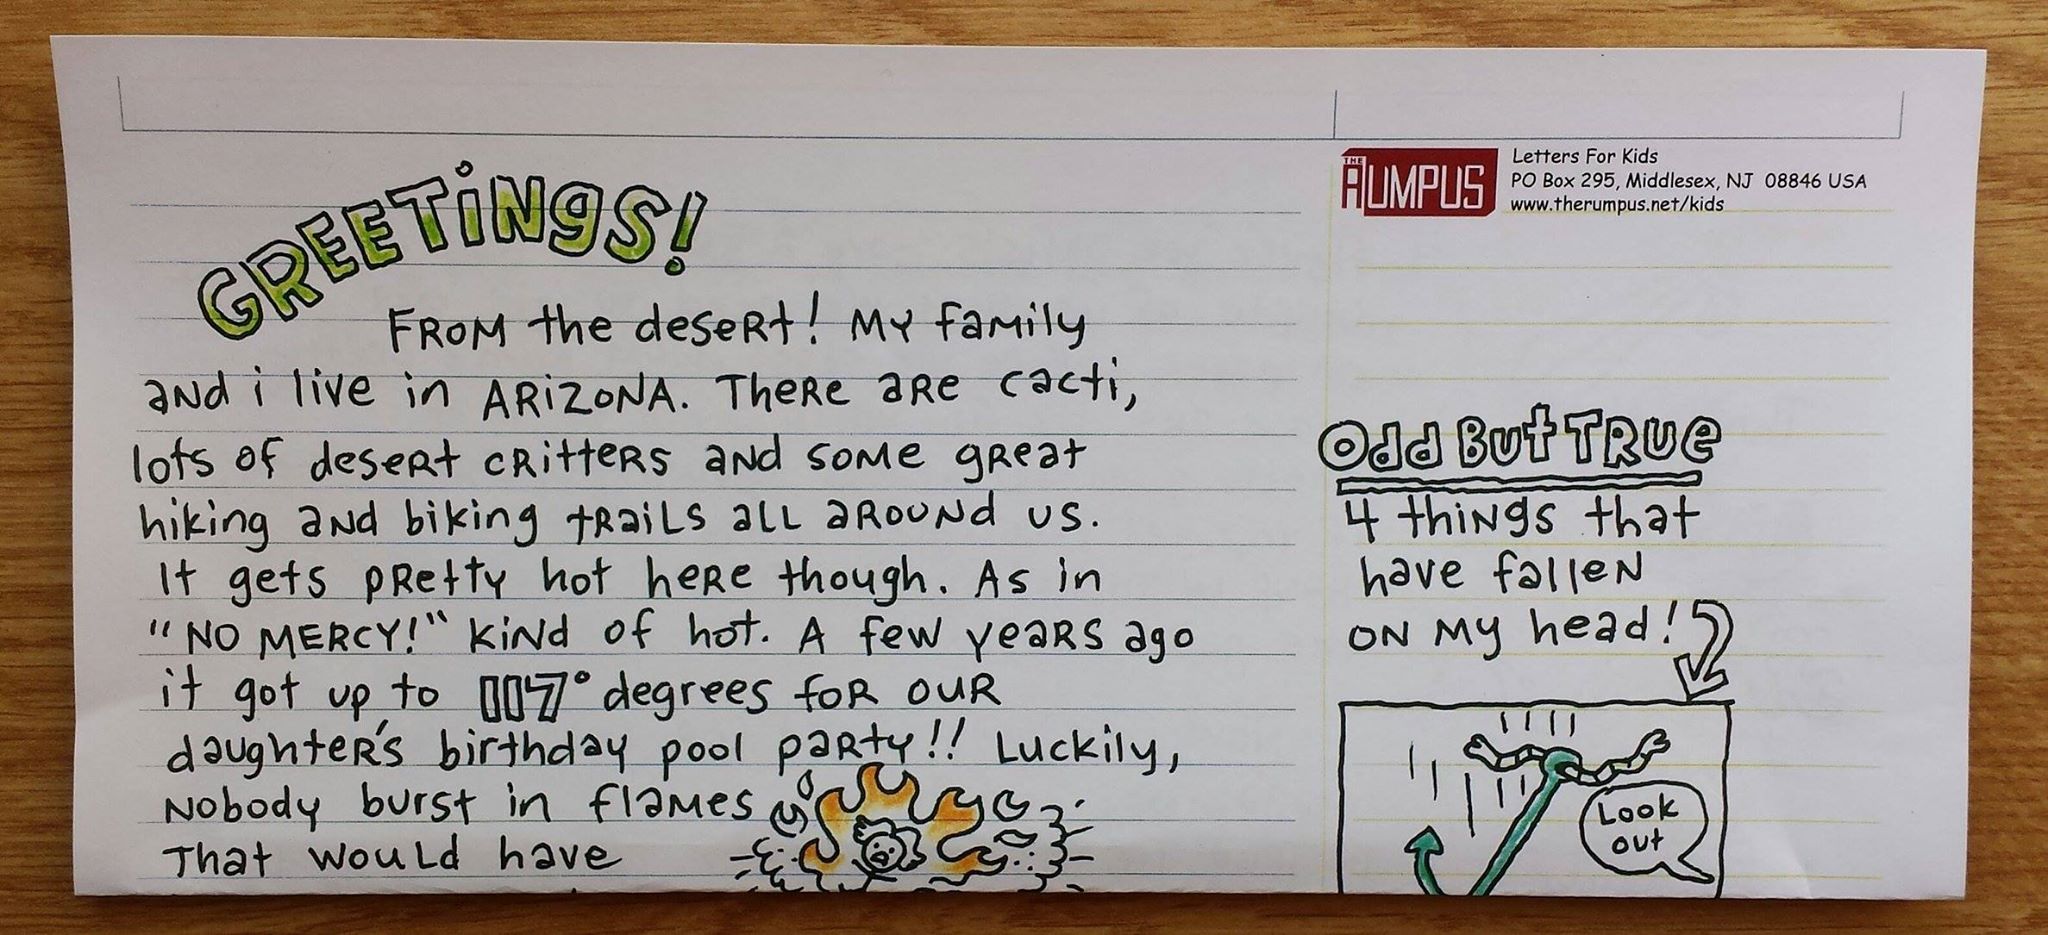 GREETiNgS!
FROM the deseRt! My family
and i live in ARiZONA. TheRe aRe cacti,
lots of deseRt cRitteRs and some gReat
hiking and biking tRails all aRound us.
It gets pRetty hot heRe though. As in
"NO MERCY!" kind of hot. A few yeaRs ago
it got up to 117° degrees foR ouR
daughter's birthday pool paRty!! Luckily,
Nobody burst in flames
That would have
THE RUMPUS
Letters For Kids
PO Box 295, Middlesex, NJ 08846 USA
www.therumpus.net/kids
Odd But TRUe
4 things that
have fallen
on my head!
Look
out